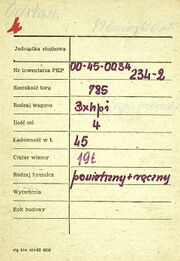 Jednostka służbowa
Nr inwentarza PKP 00-45-0034
234-2
Szerokość toru 785
Rodzaj wagonu 3xhpi
Ilość osi 4
Ładowność w t. 45
Ciężar własny 19t
Rodzaj hamulca powietrzny+ręczny
Wytwórnia
Rok budowy